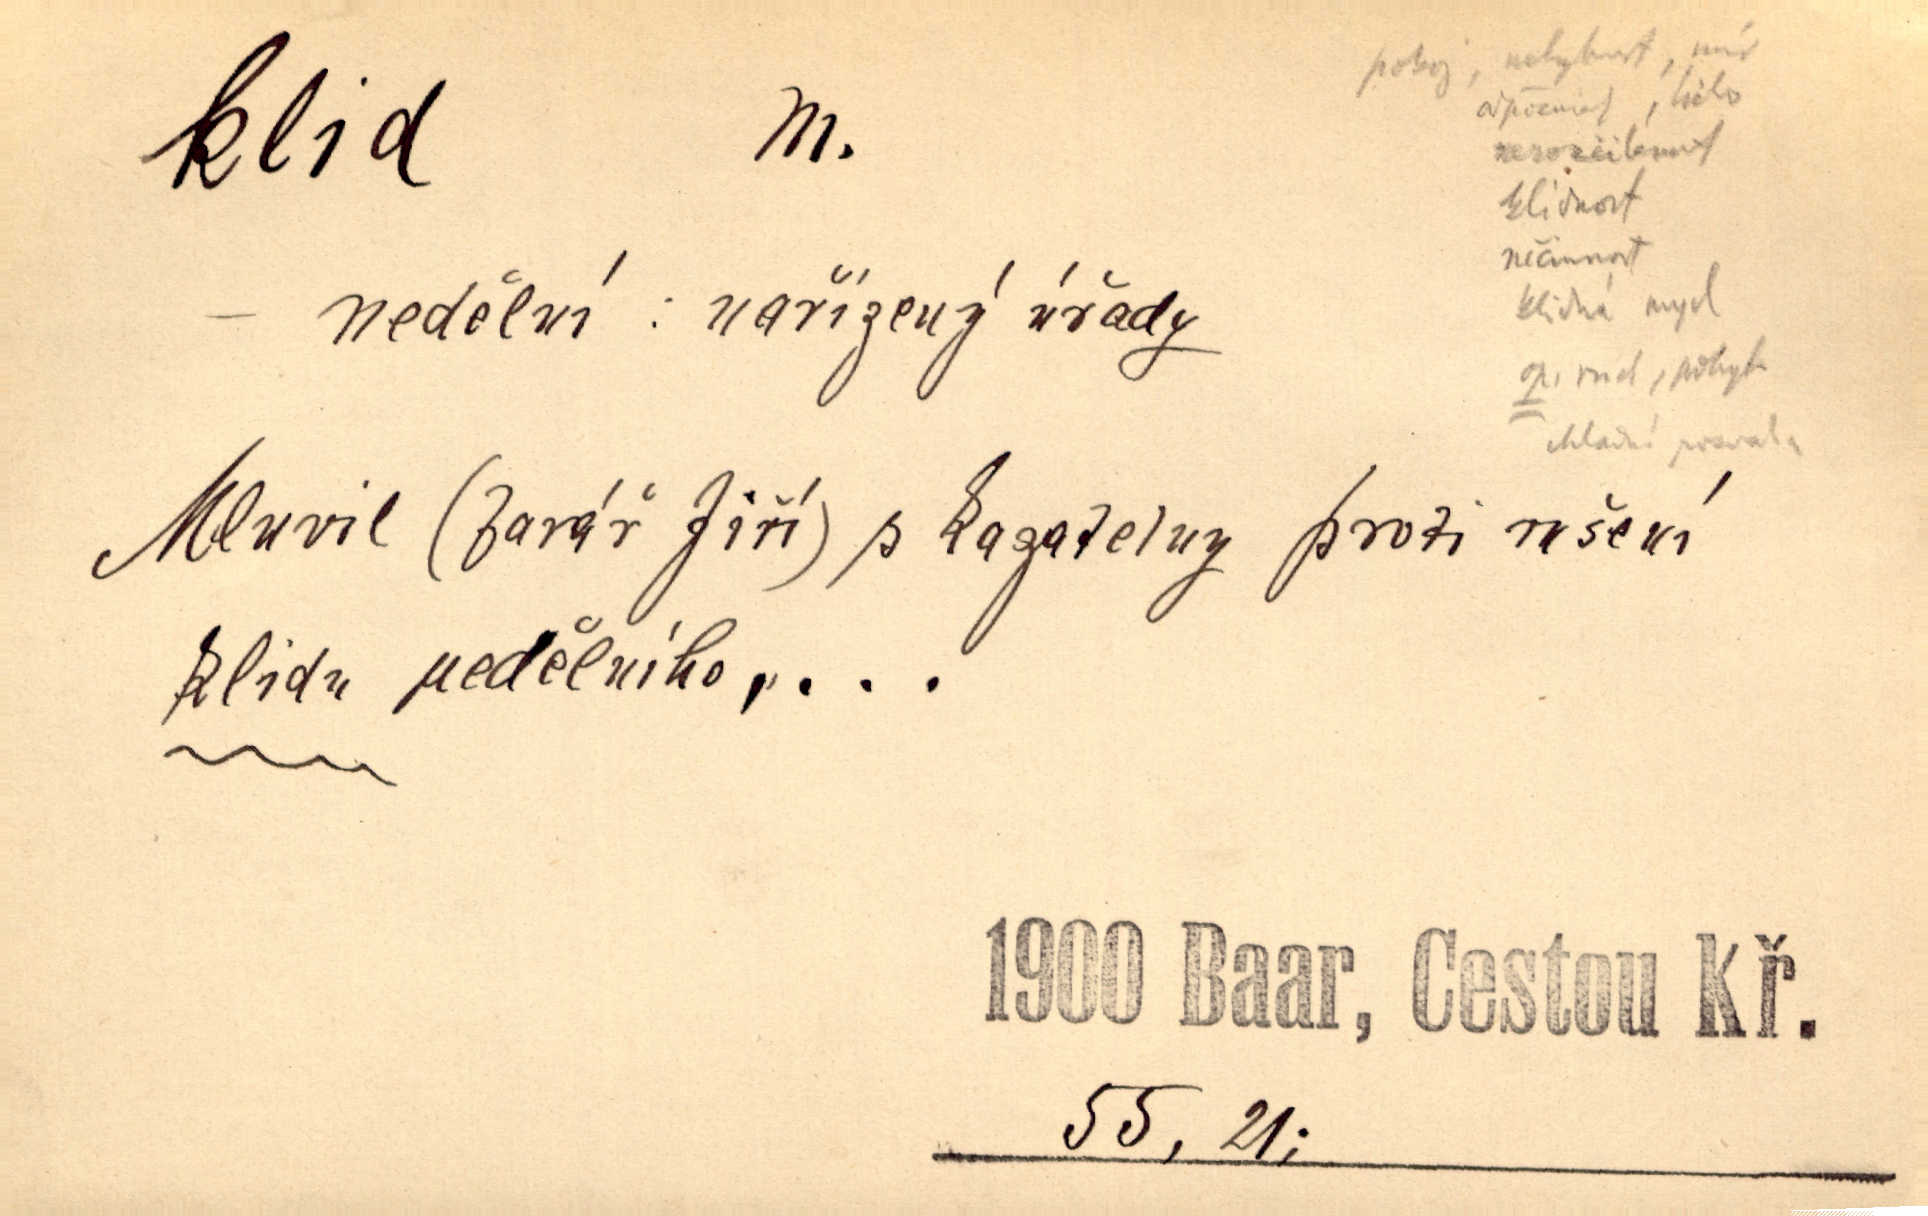 klid m.
pokoj, nehybnost, mír
odpočinutí, ticho
nerozčilenost
klidnost
nečinnost
klidná mysl
op. ruch, pohyb
– nedělní : nařízený úřady
Mluvil (farář Jiří) s kazatelny proti rušení
klidu nedělního, . . .
1900 Baar, Cestou Kř.
55, 21;